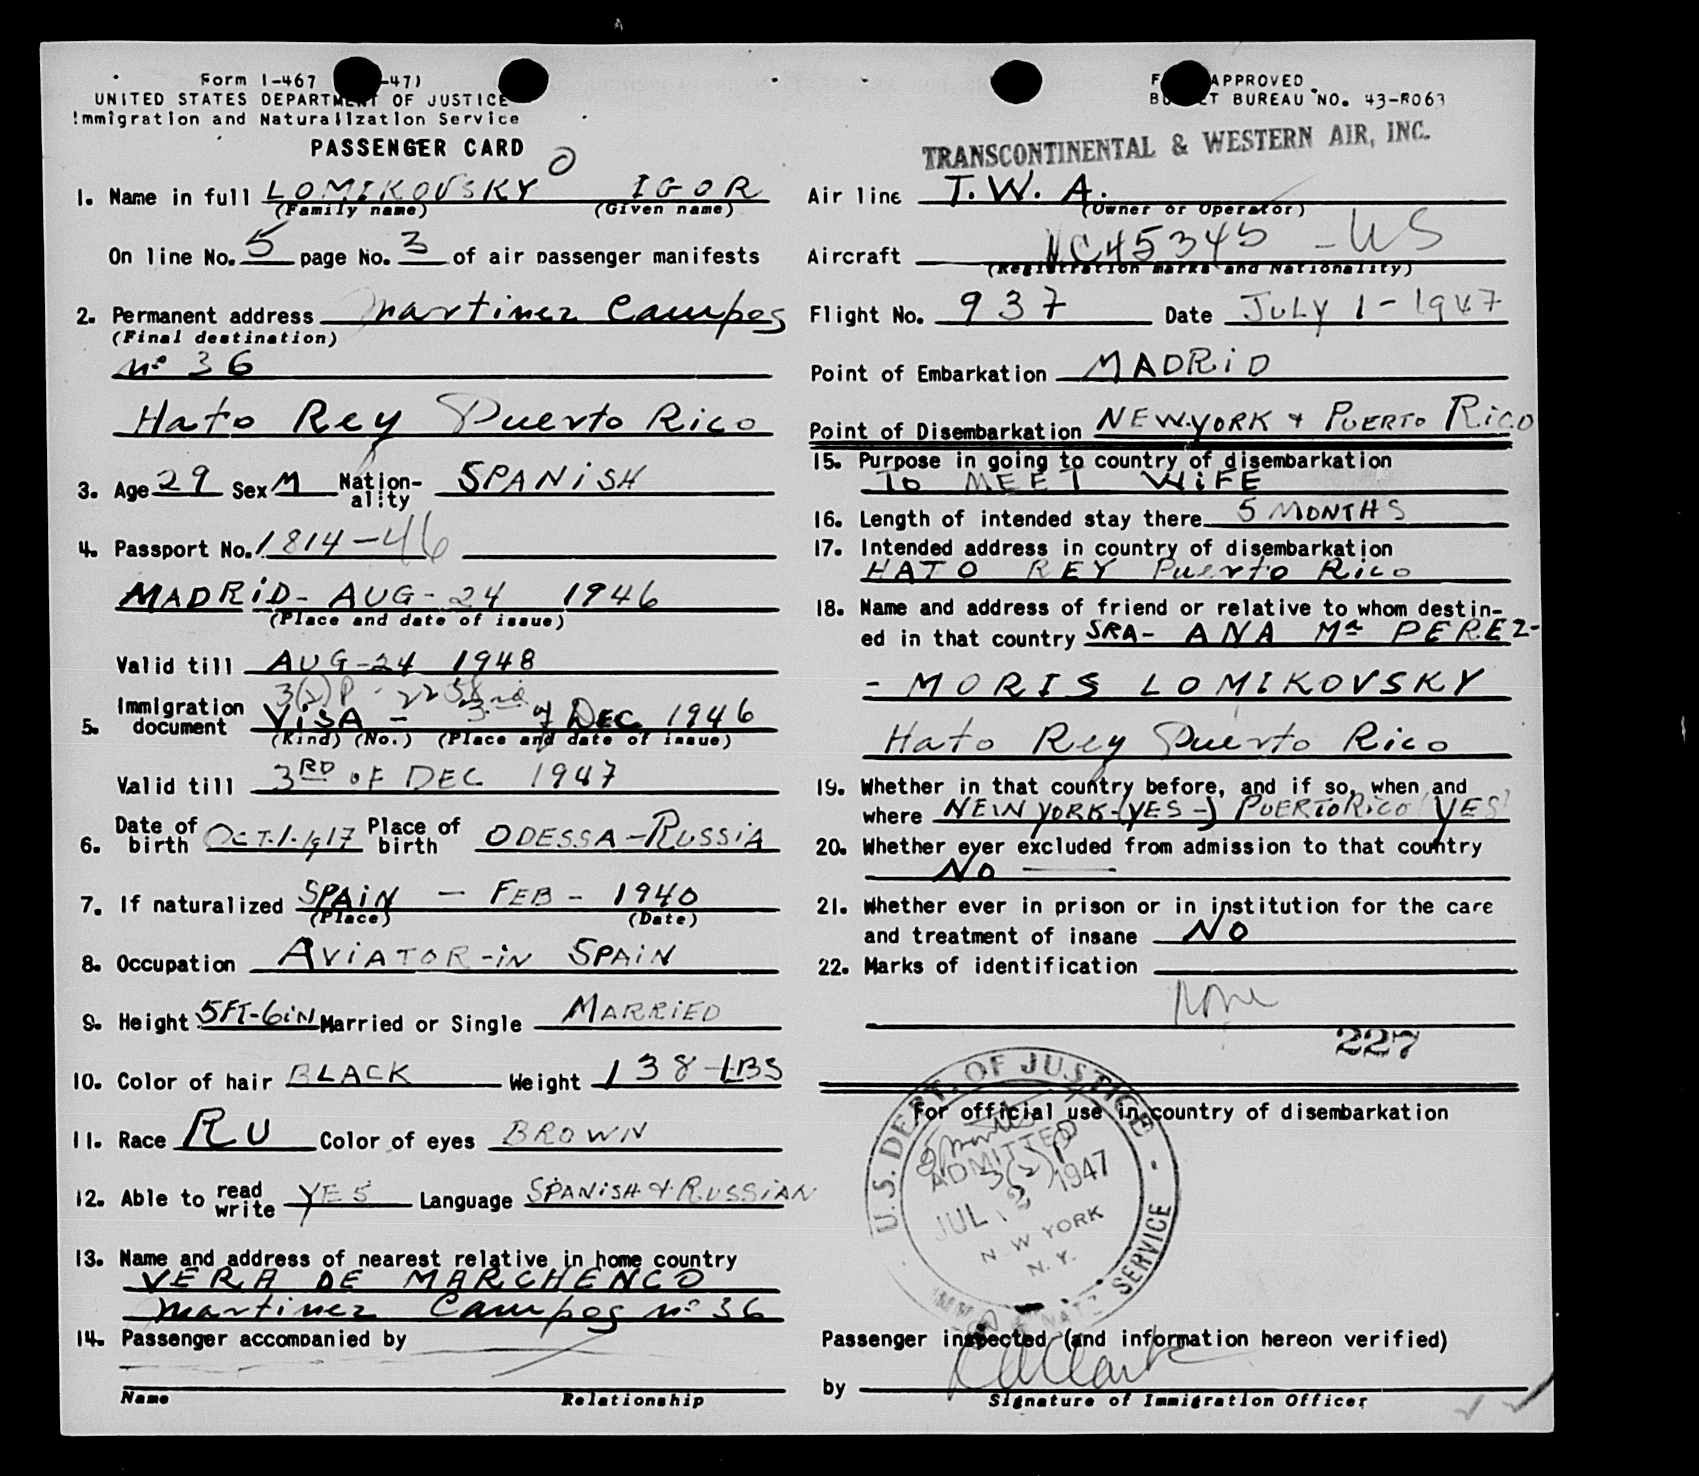 Form I-467 -47)
UNITED STATES DEPARTMENT OF JUSTICE
Immigration and Naturalization Service
PASSENGER CARD
O
1. Name in full LOMIKOVSKY IGOR
(Family name) (Given name)
On line No. 5 page No. 3 of air passenger manifests
2. Permanent address Martinez Campos
(Final destination)
nº 36
Hato Rey Puerto Rico
3. Age 29 Sex M Nation-ality SPANiSH
4. Passport No. 1814-46
MADRiD- AUG-24 1946
(Place and date of issue)
Valid till AUG-24 1948
3(2)P-
5. Immigration document ViSA - 3 of DEC 1946
(Kind) (No.) (Place and date of issue)
Valid till 3RD oF DEC 1947
6. Date of birth OCT.1.1917 Place of birth ODESSA-RUSSiA
7. If naturalized SPAiN - FEB- 1940
(Place) (Date)
8. Occupation AViATOR-iN SPAiN
9. Height 5FT-6iN Married or Single MARRiED
10. Color of hair BLACK Weight 138-LBS
11. Race RU Color of eyes BROWN
12. Able to read write YES Language SPANiSH & RUSSiAN
13. Name and address of nearest relative in home country
VERA DE MARCHENCO
Martinez Campos nº 36
14. Passenger accompanied by
Name Relationship
APPROVED
BUREAU NO. 43-R063
TRANSCONTINENTAL & WESTERN AIR, INC.
Air line T.W.A.
(Owner or Operator)
Aircraft NC45345 -US
(Registration marks and Nationality)
Flight No. 937 Date JULY 1-1947
Point of Embarkation MADRiD
Point of Disembarkation NEW.YORK & PUERTO RiCO
15. Purpose in going to country of disembarkation
To MEET WiFE
16. Length of intended stay there 5 MONTHS
17. Intended address in country of disembarkation
HATO REY Puerto Rico
18. Name and address of friend or relative to whom destin-
ed in that country SRA- ANA Mª PEREZ-
- MORIS LOMIKOVSKY
Hato Rey Puerto Rico
19. Whether in that country before, and if so, when and
where NEW YORK-(YES-) PUERTO RiCO (YES)
20. Whether ever excluded from admission to that country
No
21. Whether ever in prison or in institution for the care
and treatment of insane NO
22. Marks of identification
None
227
For official use in country of disembarkation
U.S. DEPT. OF JUSTICE
ADMITTED
3(2)P
JUL 2 1947
N W YORK
N.Y.
SERVICE
Passenger inspected (and information hereon verified)
by Clark
Signature of Immigration Officer